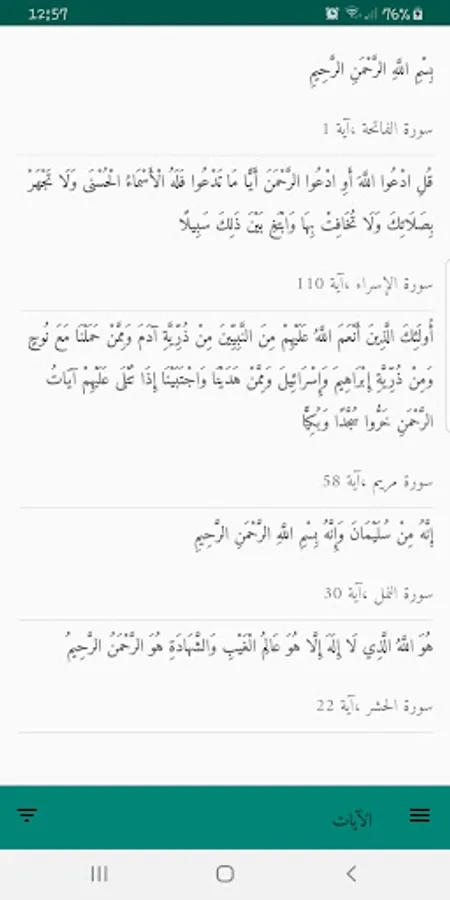 12:57 76%
بِسْمِ اللَّهِ الرَّحْمَنِ الرَّحِيمِ
سورة الفاتحة ،آية 1
قُلِ ادْعُوا اللَّهَ أَوِ ادْعُوا الرَّحْمَنَ أَيًّا مَا تَدْعُوا فَلَهُ الْأَسْمَاءُ الْحُسْنَى وَلَا تَجْهَرْ
بِصَلَاتِكَ وَلَا تُخَافِتْ بِهَا وَابْتَغِ بَيْنَ ذَلِكَ سَبِيلًا
سورة الإسراء ،آية 110
أُولَئِكَ الَّذِينَ أَنْعَمَ اللَّهُ عَلَيْهِمْ مِنَ النَّبِيِّينَ مِنْ ذُرِّيَّةِ آدَمَ وَمِمَّنْ حَمَلْنَا مَعَ نُوحٍ
وَمِنْ ذُرِّيَّةِ إِبْرَاهِيمَ وَإِسْرَائِيلَ وَمِمَّنْ هَدَيْنَا وَاجْتَبَيْنَا إِذَا تُتْلَى عَلَيْهِمْ آيَاتُ
الرَّحْمَنِ خَرُّوا سُجَّدًا وَبُكِيًّا
سورة مريم ،آية 58
إِنَّهُ مِنْ سُلَيْمَانَ وَإِنَّهُ بِسْمِ اللَّهِ الرَّحْمَنِ الرَّحِيمِ
سورة النمل ،آية 30
هُوَ اللَّهُ الَّذِي لَا إِلَهَ إِلَّا هُوَ عَالِمُ الْغَيْبِ وَالشَّهَادَةِ هُوَ الرَّحْمَنُ الرَّحِيمُ
سورة الحشر ،آية 22
الآيات